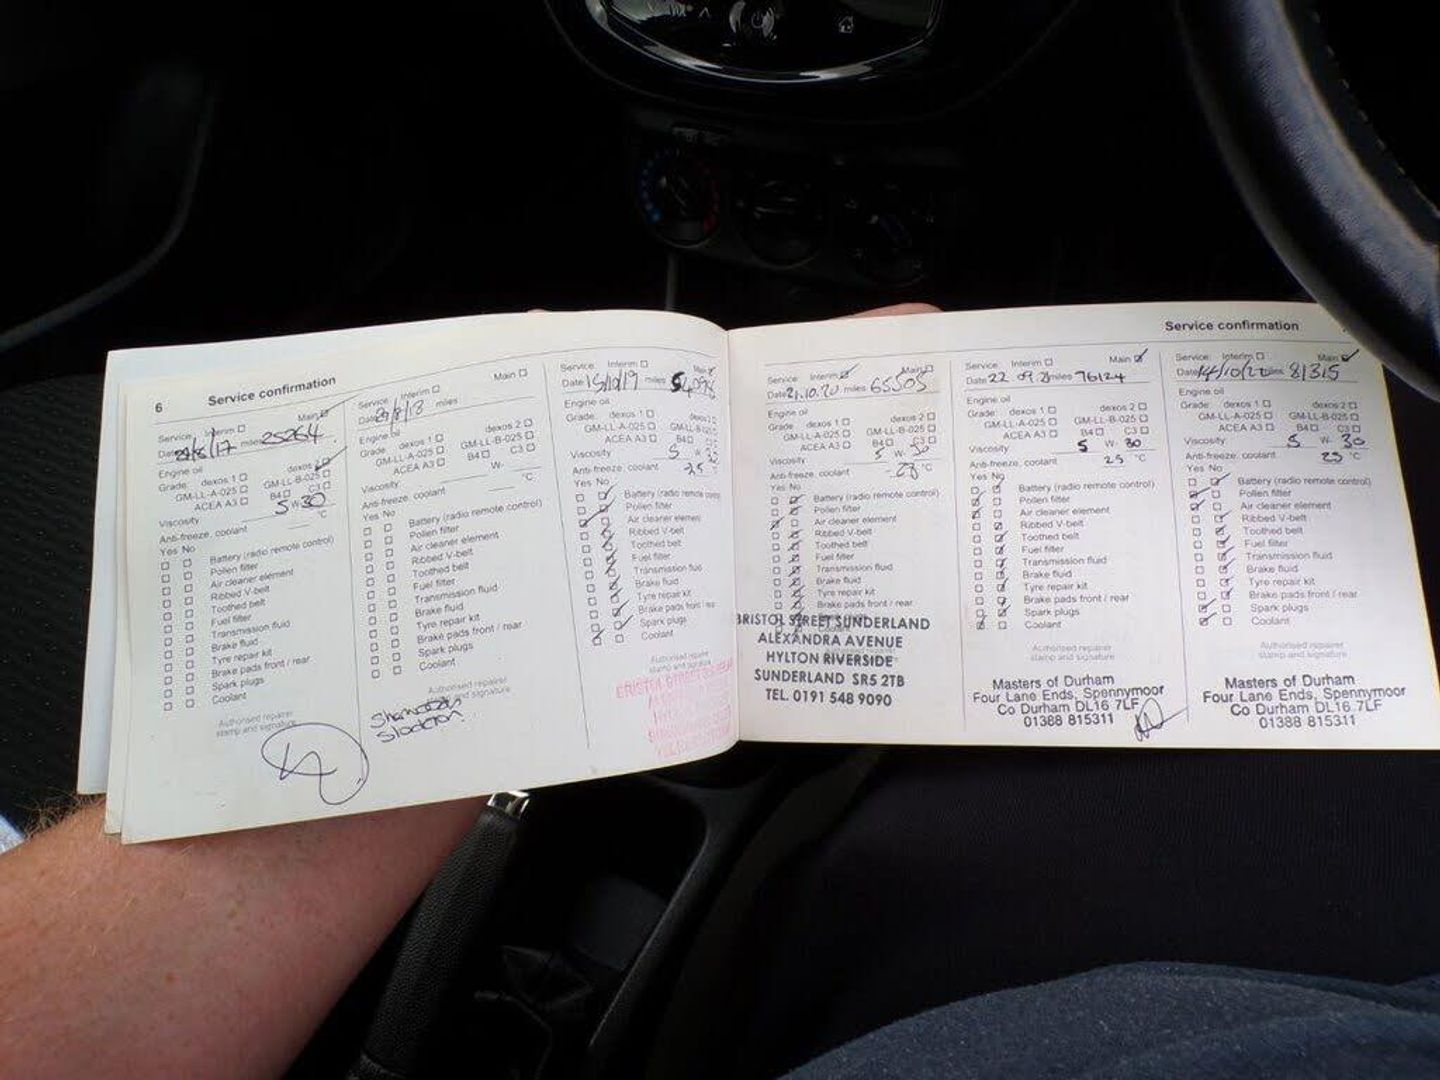 6 Service confirmation
Service: Interim Main
miles 25264
Engine oil
Grade: dexos 1 dexos 2
GM-LL-A-025 GM-LL-B-025
ACEA A3 B4 C3
Viscosity 5 W- 30
Anti-freeze, coolant °C
Yes No
Battery (radio remote control)
Pollen filter
Air cleaner element
Ribbed V-belt
Toothed belt
Fuel filter
Transmission fluid
Brake fluid
Tyre repair kit
Brake pads front / rear
Spark plugs
Coolant
Authorised repairer
stamp and signature
Service: Interim Main
Date miles
Engine oil
Grade: dexos 1 dexos 2
GM-LL-A-025 GM-LL-B-025
ACEA A3 B4 C3
Viscosity W-
Anti-freeze, coolant °C
Yes No
Battery (radio remote control)
Pollen filter
Air cleaner element
Ribbed V-belt
Toothed belt
Fuel filter
Transmission fluid
Brake fluid
Tyre repair kit
Brake pads front / rear
Spark plugs
Coolant
Authorised repairer
stamp and signature
Service: Interim Main
Date 15/10/19 miles
Engine oil
Grade: dexos 1 dexos 2
GM-LL-A-025 GM-LL-B-025
ACEA A3 B4
Viscosity 5 W
Anti-freeze, coolant
Yes No
Battery (radio remote control)
Pollen filter
Air cleaner element
Ribbed V-belt
Toothed belt
Fuel filter
Transmission fluid
Brake fluid
Tyre repair kit
Brake pads front / rear
Spark plugs
Coolant
Authorised repairer
stamp and signature
Service confirmation
Service: Interim Main
Date 21.10.20 miles 65505
Engine oil
Grade: dexos 1 dexos 2
GM-LL-A-025 GM-LL-B-025
ACEA A3 B4 C3
Viscosity 5 W- 30
Anti-freeze, coolant -28 °C
Yes No
Battery (radio remote control)
Pollen filter
Air cleaner element
Ribbed V-belt
Toothed belt
Fuel filter
Transmission fluid
Brake fluid
Tyre repair kit
Brake pads front / rear
BRISTOL STREET SUNDERLAND
ALEXANDRA AVENUE
HYLTON RIVERSIDE
SUNDERLAND SR5 2TB
TEL. 0191 548 9090
Service: Interim Main
Date 22 09 21 miles 76124
Engine oil
Grade: dexos 1 dexos 2
GM-LL-A-025 GM-LL-B-025
ACEA A3 B4 C3
Viscosity 5 W- 30
Anti-freeze, coolant 25 °C
Yes No
Battery (radio remote control)
Pollen filter
Air cleaner element
Ribbed V-belt
Toothed belt
Fuel filter
Transmission fluid
Brake fluid
Tyre repair kit
Brake pads front / rear
Spark plugs
Coolant
Authorised repairer
stamp and signature
Masters of Durham
Four Lane Ends, Spennymoor
Co Durham DL16 7LF
01388 815311
Service: Interim Main
Date 14/10/22 miles 81315
Engine oil
Grade: dexos 1 dexos 2
GM-LL-A-025 GM-LL-B-025
ACEA A3 B4 C3
Viscosity 5 W- 30
Anti-freeze, coolant 25 °C
Yes No
Battery (radio remote control)
Pollen filter
Air cleaner element
Ribbed V-belt
Toothed belt
Fuel filter
Transmission fluid
Brake fluid
Tyre repair kit
Brake pads front / rear
Spark plugs
Coolant
Authorised repairer
stamp and signature
Masters of Durham
Four Lane Ends, Spennymoor
Co Durham DL16 7LF
01388 815311